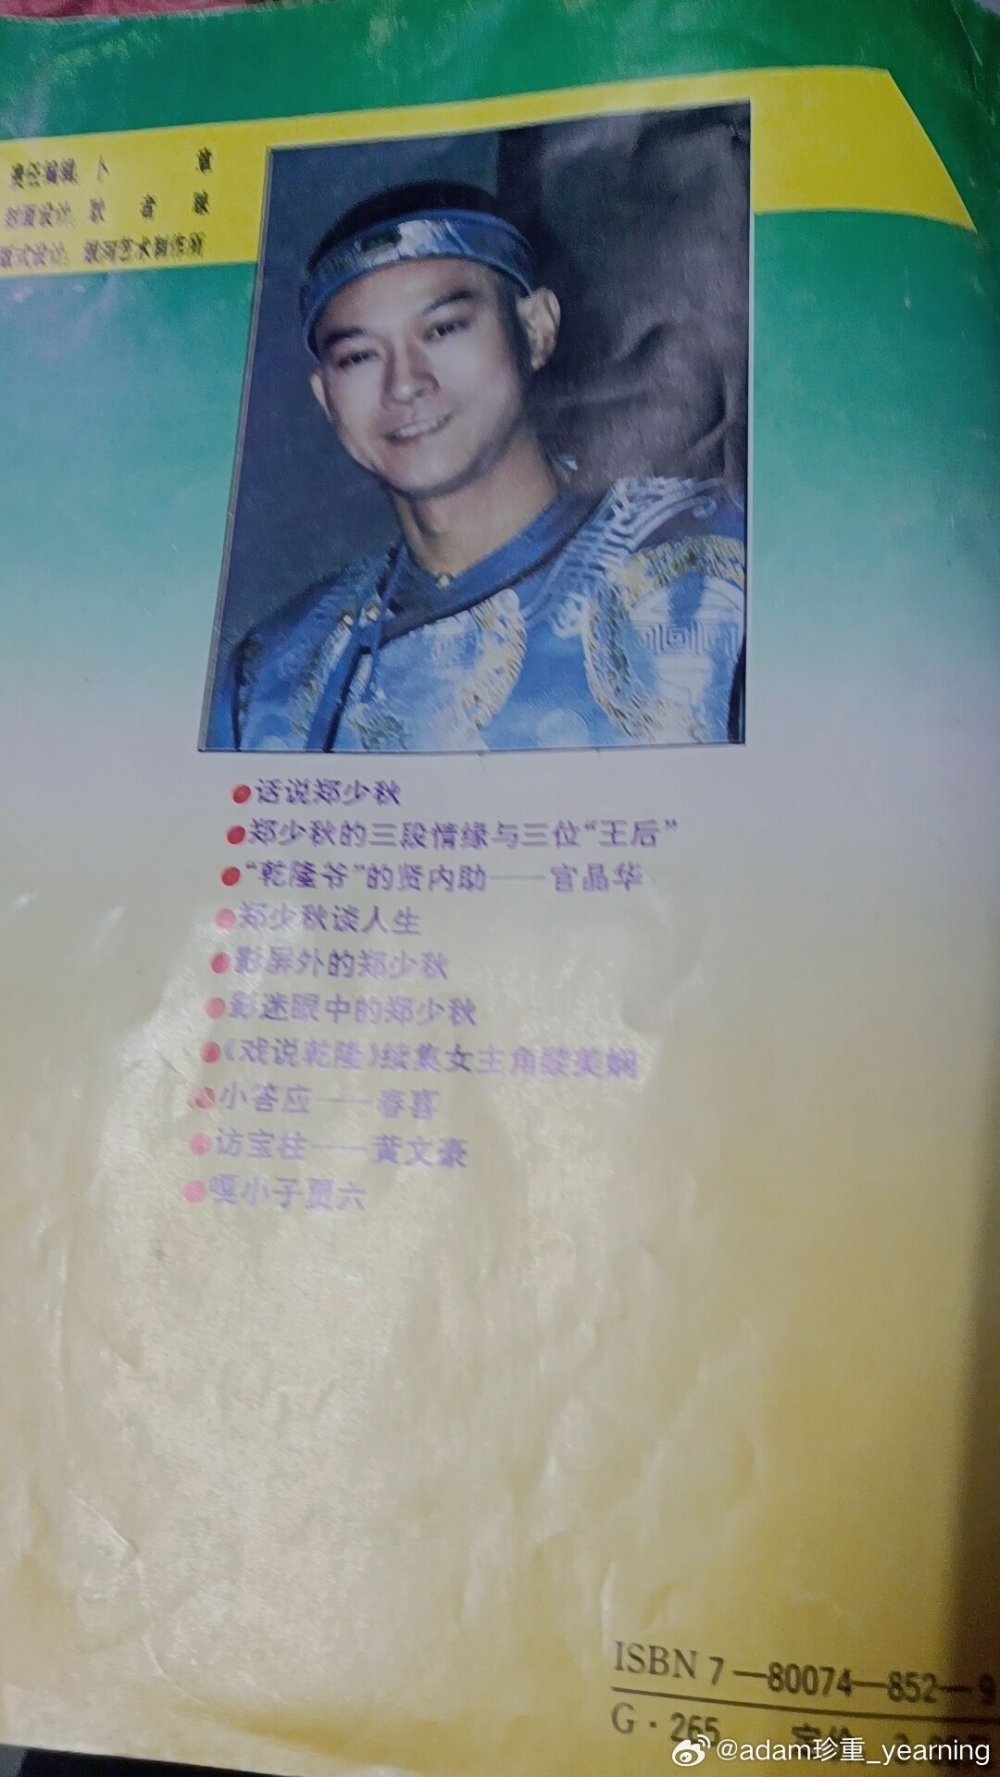 责任编辑: 卜 章
封面设计: 耿 音
版式设计: 艺术制作所
●话说郑少秋
●郑少秋的三段情缘与三位“王后”
●“乾隆爷”的贤内助——官晶华
●郑少秋谈人生
●影屏外的郑少秋
●影迷眼中的郑少秋
●《戏说乾隆》续集女主角黎美娴
●小答应——春喜
●访宝柱——黄文豪
●嘎小子贾六
ISBN 7—80074—852—9
G·265 定价
@adam珍重_yearning